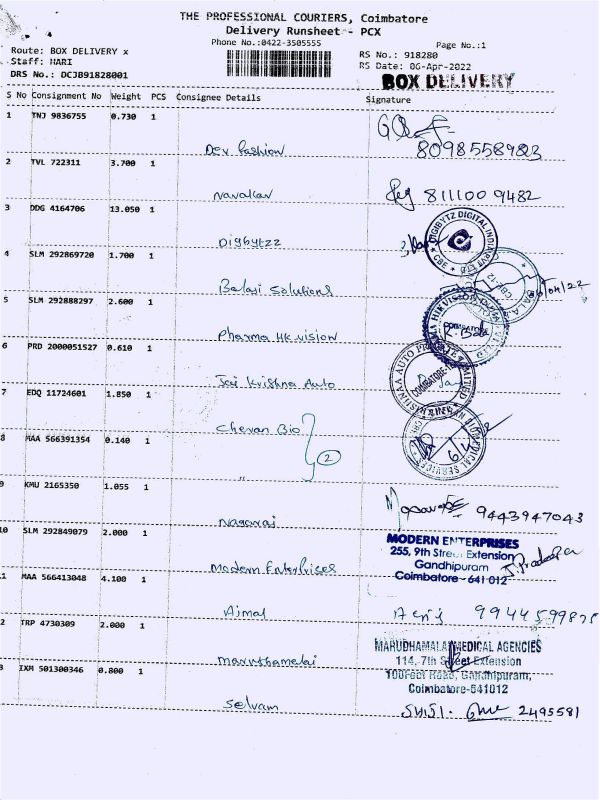 THE PROFESSIONAL COURIERS, Coimbatore
Delivery Runsheet - PCX
Phone No.:0422-3505555
Page No.:1
Route: BOX DELIVERY x
Staff: HARI
DRS No.: DCJB91828001
RS No.: 918280
RS Date: 06-Apr-2022
BOX DELIVERY
S No Consignment No Weight PCS Consignee Details Signature
1 TNJ 9836755 0.730 1
Dev fashion 8098558983
2 TVL 722311 3.700 1
Navakar 8111009482
3 DDG 4164706 13.050 1
Digbytzz
DIGIBYTZ DIGITAL INDIA PVT LTD
CBE
4 SLM 292869720 1.700 1
Balaji Solutions
5 SLM 292888297 2.600 1
Pharma HK vision
6 PRD 2000051527 0.610 1
Jai Krishna Auto
7 EDQ 11724601 1.850 1
Chevan Bio
8 MAA 566391354 0.140 1
" 2
9 KMU 2165350 1.055 1
Nagaraj 9443947043
10 SLM 292849079 2.000 1
Modern Enterprises
MODERN ENTERPRISES
255, 9th Street Extension
Gandhipuram
Coimbatore - 641 012
1 MAA 566413048 4.100 1
Ajmal
2 TRP 4730309 2.000 1
Maruthamalai
MARUDHAMALAI MEDICAL AGENCIES
114, 7th Street Extension
100Feet Road, Gandhipuram,
Coimbatore-641012
3 IXM 501300346 0.800 1
Selvam 2495581